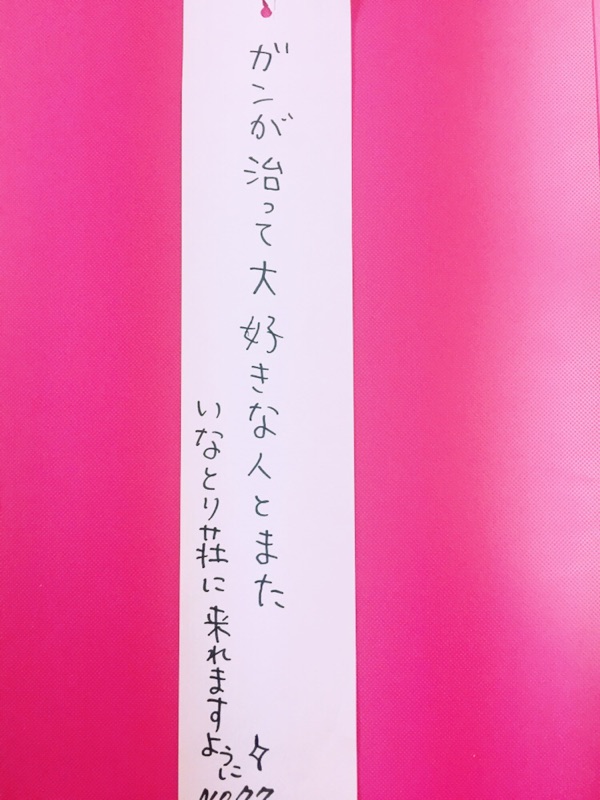 ガンが治って大好きな人とまた
いなとり荘に来れますように